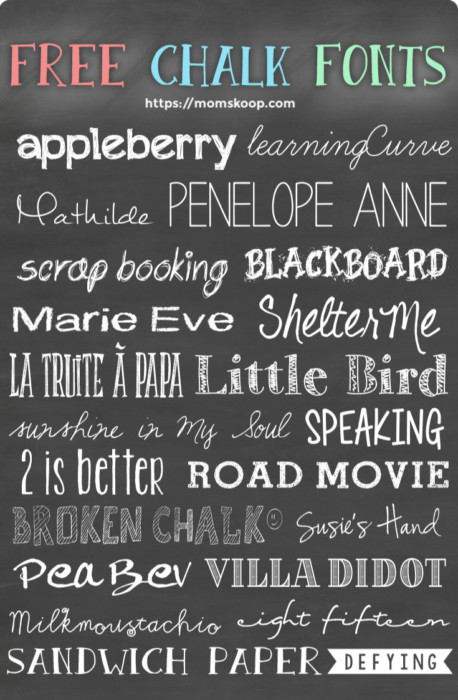 FREE CHALK FONTS
https://momskoop.com
appleberry learningCurve
Mathilde PENELOPE ANNE
scrap booking BLACKBOARD
Marie Eve ShelterMe
LA TRUITE À PAPA Little Bird
sunshine in My Soul SPEAKING
2 is better ROAD MOVIE
BROKEN CHALK Susie's Hand
Pea Bev VILLA DIDOT
Milkmoustachio eight fifteen
SANDWICH PAPER DEFYING